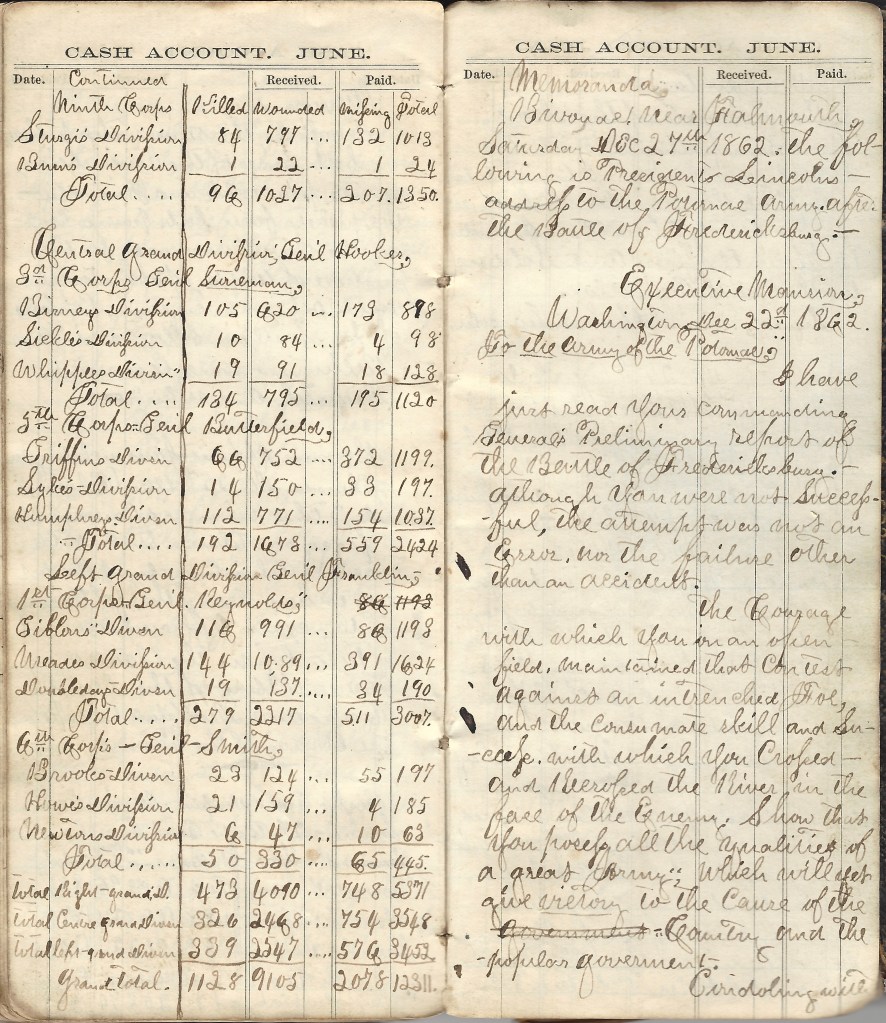 CASH ACCOUNT. JUNE.
Date. Continued Received. Paid.
Ninth Corps Killed Wounded Missing Total
Sturgis Division 84 797 ... 132 1013
Burns Division 1 22 ... 1 24
Total .... 96 1027 ... 207. 1350.
Central Grand Division, Genl Hooker,
3rd Corps Genl Stoneman,
Birneys Division 105 620 ... 173 898
Sickles Division 10 84 ... 4 98
Whipples Divisn" 19 91 18 128
Total .... 134 795 ... 195 1120
5th Corps - Genl Butterfield,
Griffins Divisn 66 752 .... 372 1199.
Sykes Division 14 150 ... 33 197.
Humphreys Divisn 112 771 .... 154 1037.
" Total .... 192 1673 ... 559 2424
Left Grand Division Genl Franklin,
1st Corps - Genl. Reynolds," 86 1193
Gibbons" Divisn 116 991 ... 86 1193
Meades Division 144 10.89 ... 391 1624
Doubledays - Divisn 19 137. .... 34 190
Total ..... 279 2217 511 3007.
6th Corps - Genl - Smith,
Brooks - Divisn 23 124 ... 55 197
Howes Division 21 159 ... 4 185
Newtons Division 6 47 ... 10 63
Total ..... 50 330 .... 65 445.
Total Right - grand D. 473 4090 ... 748 5371
Total Centre grand Divisn 326 2468 .... 754 3548
Total left - grand Divisn 339 2547 ... 576 3452
Grand Total. 1128 9105 2078 12311.
CASH ACCOUNT. JUNE.
Date. Memoranda, Received. Paid.
Bivouac! near Falmouth,
Saturday DEC 27th 1862. the fol-
lowing is Precidents Lincolns -
address to the Potomac army. after
the Battle of Fredericksburg. -
Executive Mansion,
Washington, Dec 22d 1862.
To the army of the Potomac,"
I have
just read your commanding
Generals Preliminary report of
the Battle of Fredericksburg. -
although you were not Success-
-ful, the attempt was not an
Error. nor the failure other
than an accident.
The Courage
with which you on an open
field. maintained that Contest
against an intrenched Foe,
and the consumate skill and Su-
-ccess. with which you Crossed -
and Recrossed the River, in the
face of the Enemy. Show that
you possess all the qualities of
a great Army", which will yet
give victory to the Cause of the
Government - Country and the
-popular goverment.